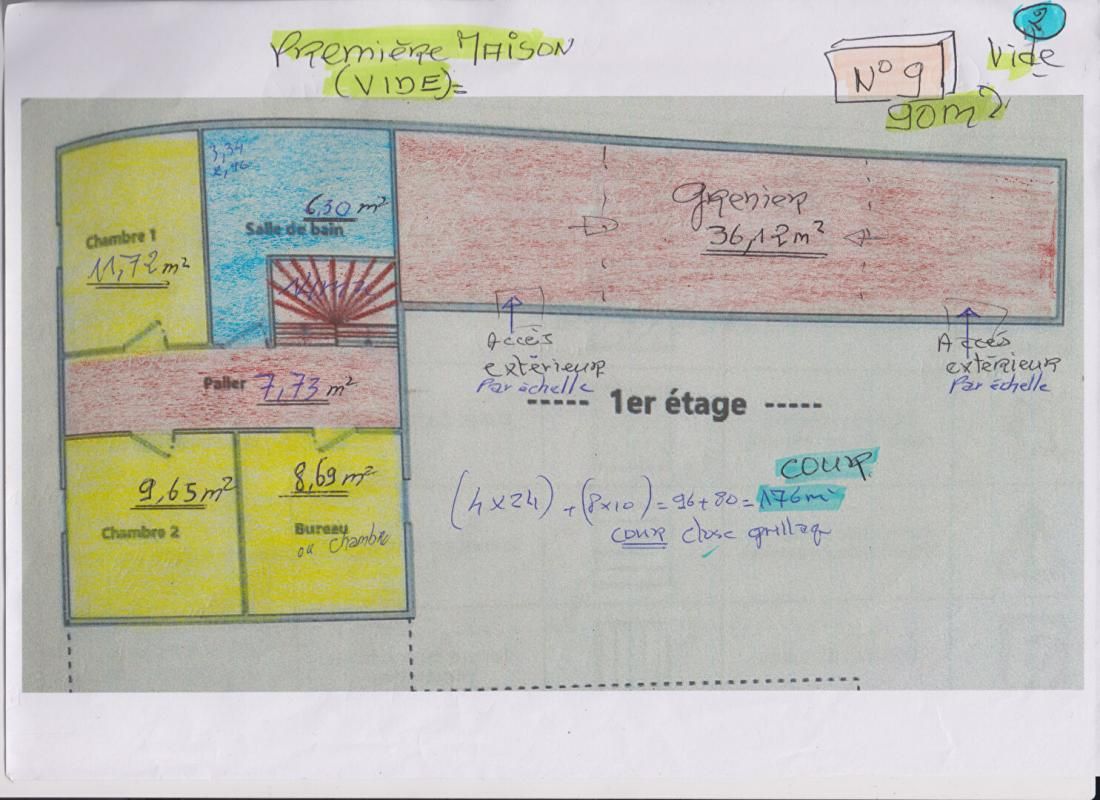 2
PREMIÈRE MAISON
(VIDE)=
N° 9
Vide
90m²
3,34
Grenier
36,12 m²
6,30 m²
Salle de bain
Chambre 1
11,72 m²
Accès
extérieur
Par échelle
Accès
extérieur
Par échelle
Palier 7,73 m²
----- 1er étage -----
9,65 m²
Chambre 2
8,69 m²
Bureau
ou chambre
COUR
(4x24) + (8x10) = 96+80 = 176m²
COUR close grillag